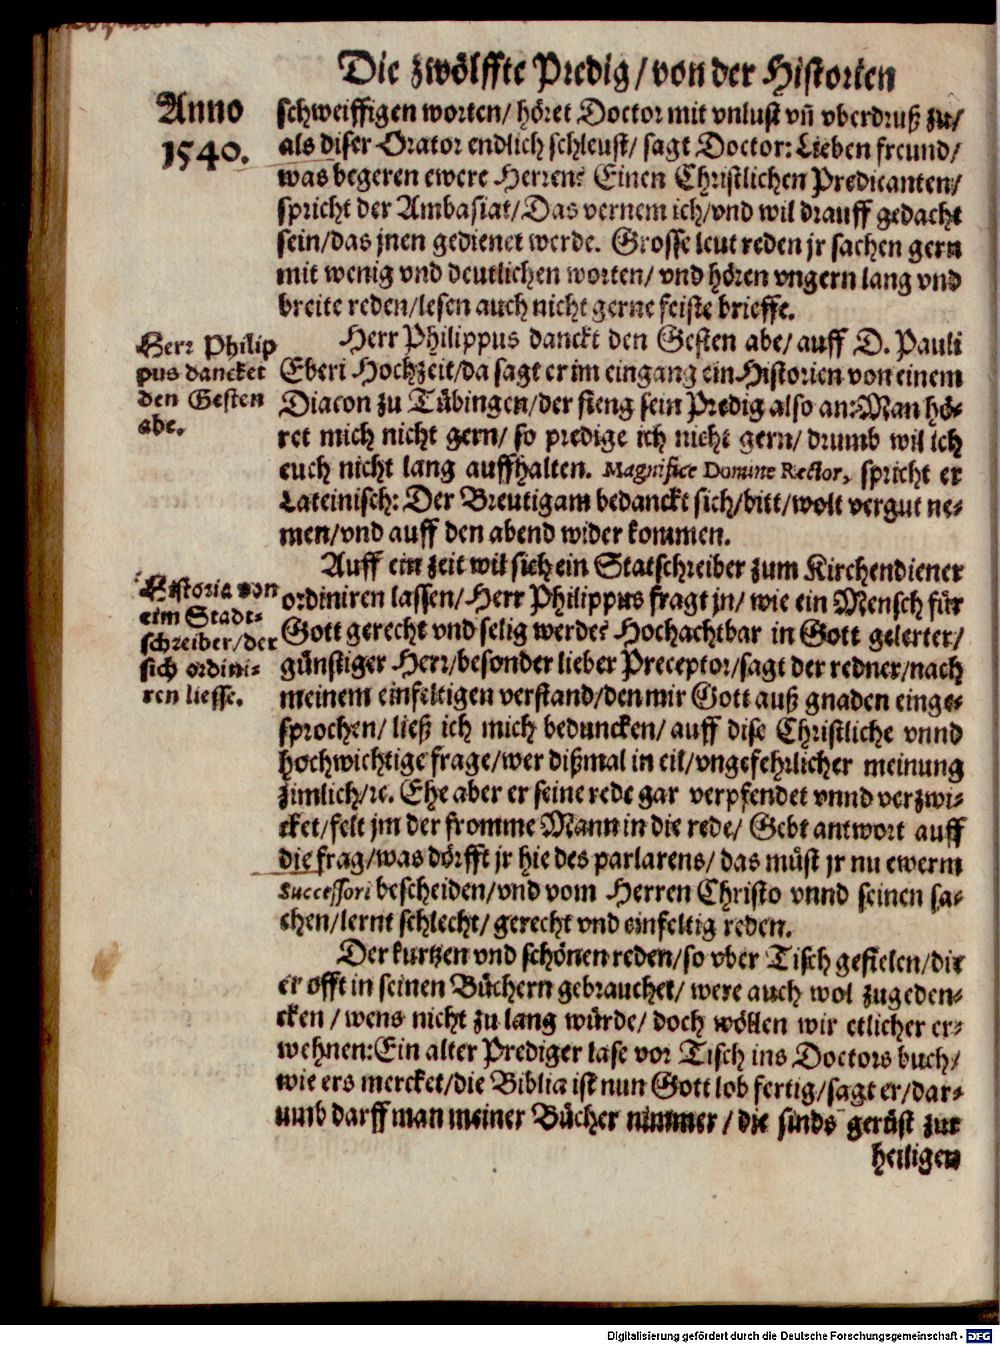 Die zwölffte Predig / von der Historien
Anno
1540.
schweiffigen worten / höret Doctor mit vnlust vñ vberdruß zu /
als diser Orator endlich schleust / sagt Doctor: Lieben freund /
was begeren ewere Herren? Einen Christlichen Predicanten /
spricht der Ambasiat / Das vernem ich / vnd wil drauff gedacht
sein / das jnen gedienet werde. Grosse leut reden jr sachen gern
mit wenig vnd deutlichen worten / vnd hören vngern lang vnd
breite reden / lesen auch nicht gerne feiste brieffe.
Herr Philip
pus dancket
den Gesten
abe.
Herr Philippus danckt den Gesten abe / auff D. Pauli
Eberi Hochzeit / da sagt er im eingang ein Historien von einem
Diacon zu Tübingen / der fieng sein Predig also an: Man hö-
ret mich nicht gern / so predige ich nicht gern / drumb wil ich
euch nicht lang auffhalten. Magnifice Domine Rector, spricht er
Lateinisch: Der Breutigam bedanckt sich / bitt / wolt vergut ne-
men / vnd auff den abend wider kommen.
Historia von
eim Stadt-
schreiber / der
sich ordini-
ren liesse.
Auff ein zeit wil sich ein Statschreiber zum Kirchendiener
ordiniren lassen / Herr Philippus fragt jn / wie ein Mensch für
Gott gerecht vnd selig werde? Hochachtbar in Gott gelerter /
günstiger Herr / besonder lieber Preceptor / sagt der redner / nach
meinem einfeltigen verstand / den mir Gott auß gnaden einge-
sprochen / ließ ich mich beduncken / auff dise Christliche vnnd
hochwichtige frage / wer dißmal in eil / vngefehrlicher meinung
zimlich / ꝛc. Ehe aber er seine rede gar verpfendet vnnd verzwi-
cket / felt jm der fromme Mann in die rede / Gebt antwort auff
die frag / was dörfft jr hie des parlarens / das müst jr nu ewerm
Successori bescheiden / vnd vom Herren Christo vnnd seinen sa-
chen / lernt schlecht / gerecht vnd einfeltig reden.
Der kurtzen vnd schönen reden / so vber Tisch gefielen / die
er offt in seinen Büchern gebrauchet / were auch wol zugeden-
cken / wens nicht zu lang würde / doch wöllen wir etlicher er-
wehnen: Ein alter Prediger lase vor Tisch ins Doctors buch /
wie ers mercket / die Biblia ist nun Gott lob fertig / sagt er / dar-
umb darff man meiner Bücher nimmer / die sinds gerüst zur
heiligen
Digitalisierung gefördert durch die Deutsche Forschungsgemeinschaft - DFG